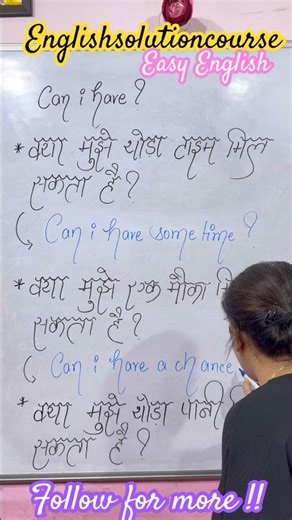 Englishsolutioncourse
Easy English
Can i have?
* क्या मुझे थोडा टाइम मिल
सकता है?
Can i have some time?
* क्या मुझे एक मौका
सकता है?
Can i have a chance
* क्या मुझे थोडा पानी
सकता है?
Follow for more !!